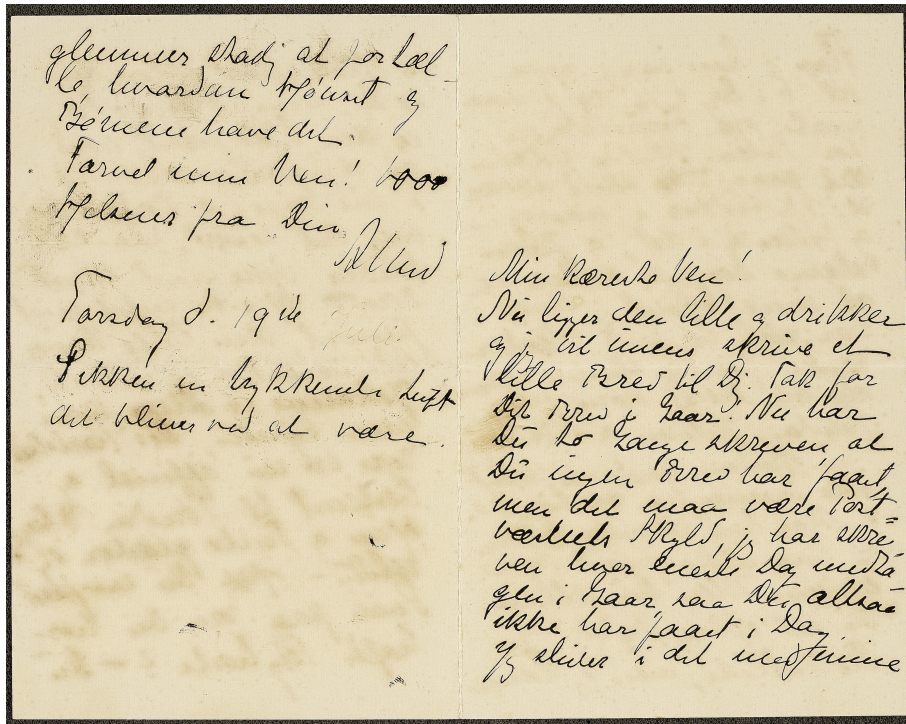 glemmer stadig at fortæl-
le, hvordan Hjemmet og
Børnene have det.
Farvel min Ven! 1000
Hilsener fra Din
Torsdag d. 19de Juli.
Sikken en trykkende Luft
det bliver ved at være.
Min kæreste Ven!
Nu ligger den lille og drikker
og jeg vil imens skrive et
lille Brev til Dig. Tak for
Dit Brev i Gaar! Nu har
Du to Gange skreven, at
Du ingen Brev har faaet,
men det maa være Post=
væsenets Skyld, jeg har skre-
ven hver eneste Dag undta-
gen i Gaar, saa Du altsaa
ikke har faaet i Dag.
Jeg sliber i det med mine